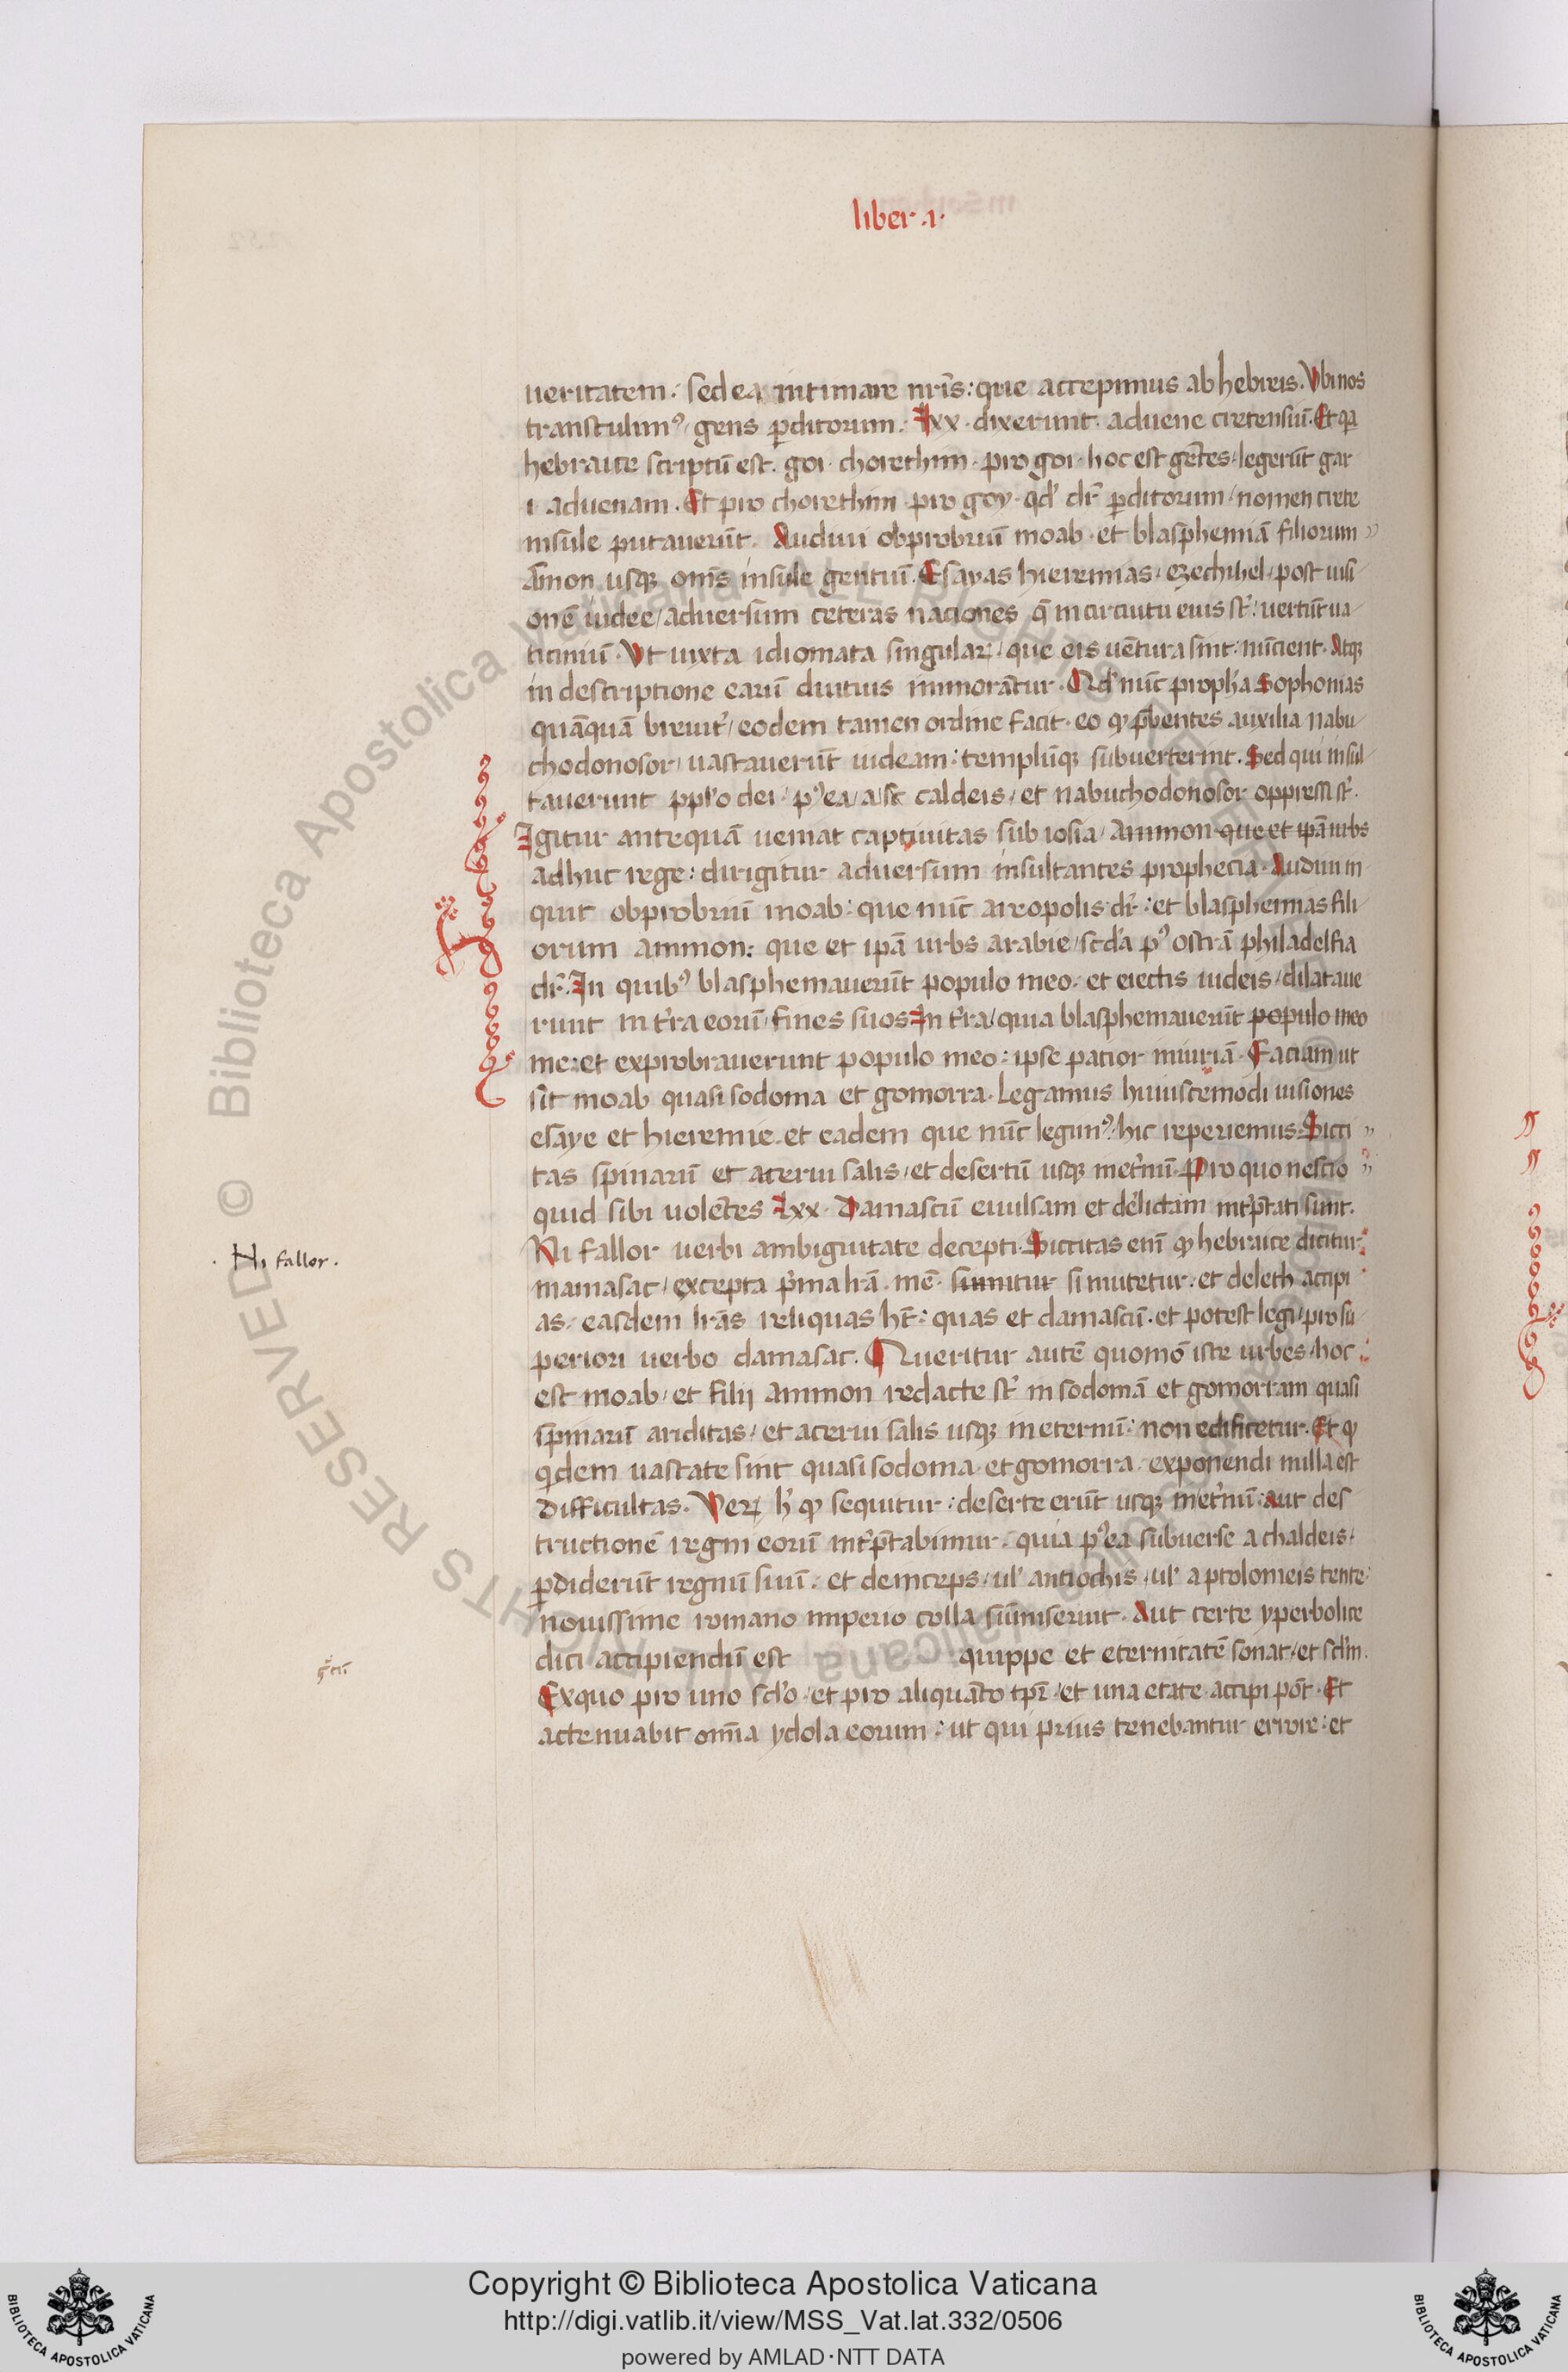 liber .1.
ueritatem. sed ea intimare nr̄is: que accepimus ab hebreis. Vbi nos
transtulimꝰ, gens ꝑditorum. Lxx. dixerunt. aduene cretensiū. Et qa
hebraice scriptū est. goi. chorethim. pro goi. hoc est gētes. legerūt gar
i. aduenam. Et pro chorethim. pro goy. qd' dr̄ ꝑditorum, nomen crete
insule putauerūt. Audiui obprobriū moab. et blasphemiā filiorum
Amon usqꝫ om̄s insule gentiū. Esayas hieremias, ezechihel, post uisi
onē iudee, aduersum ceteras naciones q̄ in circuitu eius st̄: uertūt ua
ticiniū. Vt iuxta idiomata singulaꝝ, que eis uētura sint: nūcient. Atqꝫ
in descriptione earū diutius immorātur. Qd' nūc proph'a Sophonias
quāquā breuit', eodem tamen ordine facit. eo ꝙ p̄bentes auxilia nabu
chodonosor, uastauerūt iudeam: templūqꝫ subuerterint. Sed qui insul
tauerunt ppl'o dei, pꝰea, a sc̄ caldeis, et nabuchodonosor oppressi st̄.
Igitur antequā ueniat captiuitas sub iosia, Ammon que et ipā urbs
adhuc rege: dirigitur aduersum insultantes prophecia. Audiui in
quit obprobriū moab: que nūc areopolis dr̄: et blasphemias fili
orum ammon: que et ipā urbs arabie, scd'a pꝰ ostrā philadelfia
dr̄. In quibꝰ blasphemauerūt populo meo. et eiectis iudeis, dilataue
runt in t'ra eorū, fines suos In t'ra, quia blasphemauerūt populo meo
me: et exprobrauerunt populo meo: ipse patior iniuriā. Faciam ut
sit moab quasi sodoma et gomorra. Legamus huiuscemodi uisiones
esaye et hieremie. et eadem que nūc legimꝰ, hic reperiemus. Sicci
tas spinarū et acerui salis, et desertū usqꝫ inet'nū. Pro quo nescio
quid sibi uolētes Lxx. Damascū euulsam et delictam int'p̄tati sunt.
Ni fallor uerbi ambiguitate decepti. Siccitas enī ꝙ hebraice dicitur
mamasac, excepta p'ma lr̄ā. mē. sumitur si mutetur. et deleth accipi
as, easdem lr̄as reliquas hēt: quas et damascū. et potest legi, pro su
periori uerbo damasac. Queritur autē quomō iste urbes, hoc
est moab, et filij ammon redacte st̄ in sodomā et gomorram quasi
spinarū ariditas, et acerui salis usqꝫ in eternū: non edificetur. Et ꝙ
q'dem uastate sint quasi sodoma. et gomorra. exponendi nulla est
difficultas. Veꝝ h' ꝙ sequitur: deserte erūt usqꝫ inet'nū. aut des
tructionē regni eorū int'p̄tabimur. quia pꝰea subuerse a chaldeis,
ꝑdiderūt regnū suū. et deinceps, ul' antiochis, ul' a ptolomeis tente
nouissime romano imperio colla sūmiserunt. Aut certe yperbolice
dici accipiendū est quippe et eternitatē sonat, et scl'm.
Ex quo pro uno scl'o, et pro aliquāto tp̄r, et una etate accipi pōt. Et
actenuabit om̄ia ydola eorum: ut qui prius tenebantur errore: et
. Ni fallor.
g̊cū
Copyright © Biblioteca Apostolica Vaticana
http://digi.vatlib.it/view/MSS_Vat.lat.332/0506
powered by AMLAD·NTT DATA
BIBLIOTECA APOSTOLICA VATICANA
BIBLIOTECA APOSTOLICA VATICANA
© Biblioteca Apostolica Vaticana ALL RIGHTS RESERVED